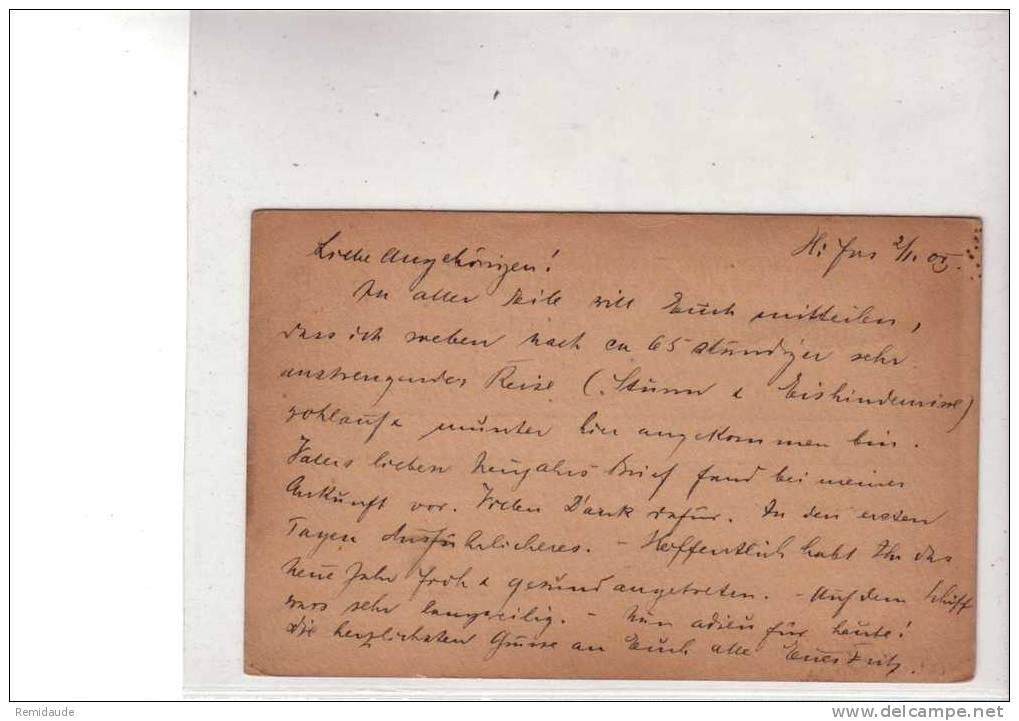 Liebe Angehörigen!
2/1. 05.
In aller Eile will Euch mitteilen,
dass ich soeben nach ca 65 stündiger sehr
anstrengender Reise (Sturm & Eishindernisse)
wohlauf & munter hier angekommen bin.
Vaters lieben Neujahrs Brief fand bei meiner
Ankunft vor. Vielen Dank dafür. In den ersten
Tagen Ausführlicheres. - Hoffentlich habt Ihr das
neue Jahr froh & gesund angetreten. - Auf dem Schiff
wars sehr langweilig. - Nun adieu für heute!
Die herzlichsten Grüsse an Euch alle Euer Fritz.
Remidaude
www.delcampe.net